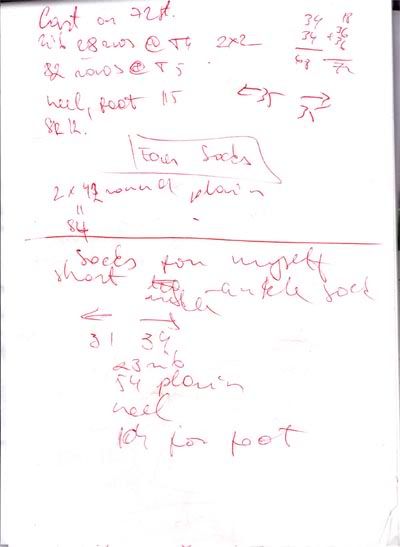 Cast on 72st.
Rib 28 rows @ T4 2x2
82 rows @ T5
heel, foot 115
← 35 → 35
34 18
34 +36
36
68 72
Socks
2 x 42 round plain
"
84
Socks for myself
short
ankle sock
← →
31 39
23 rib
54 plain
heel
104 for foot